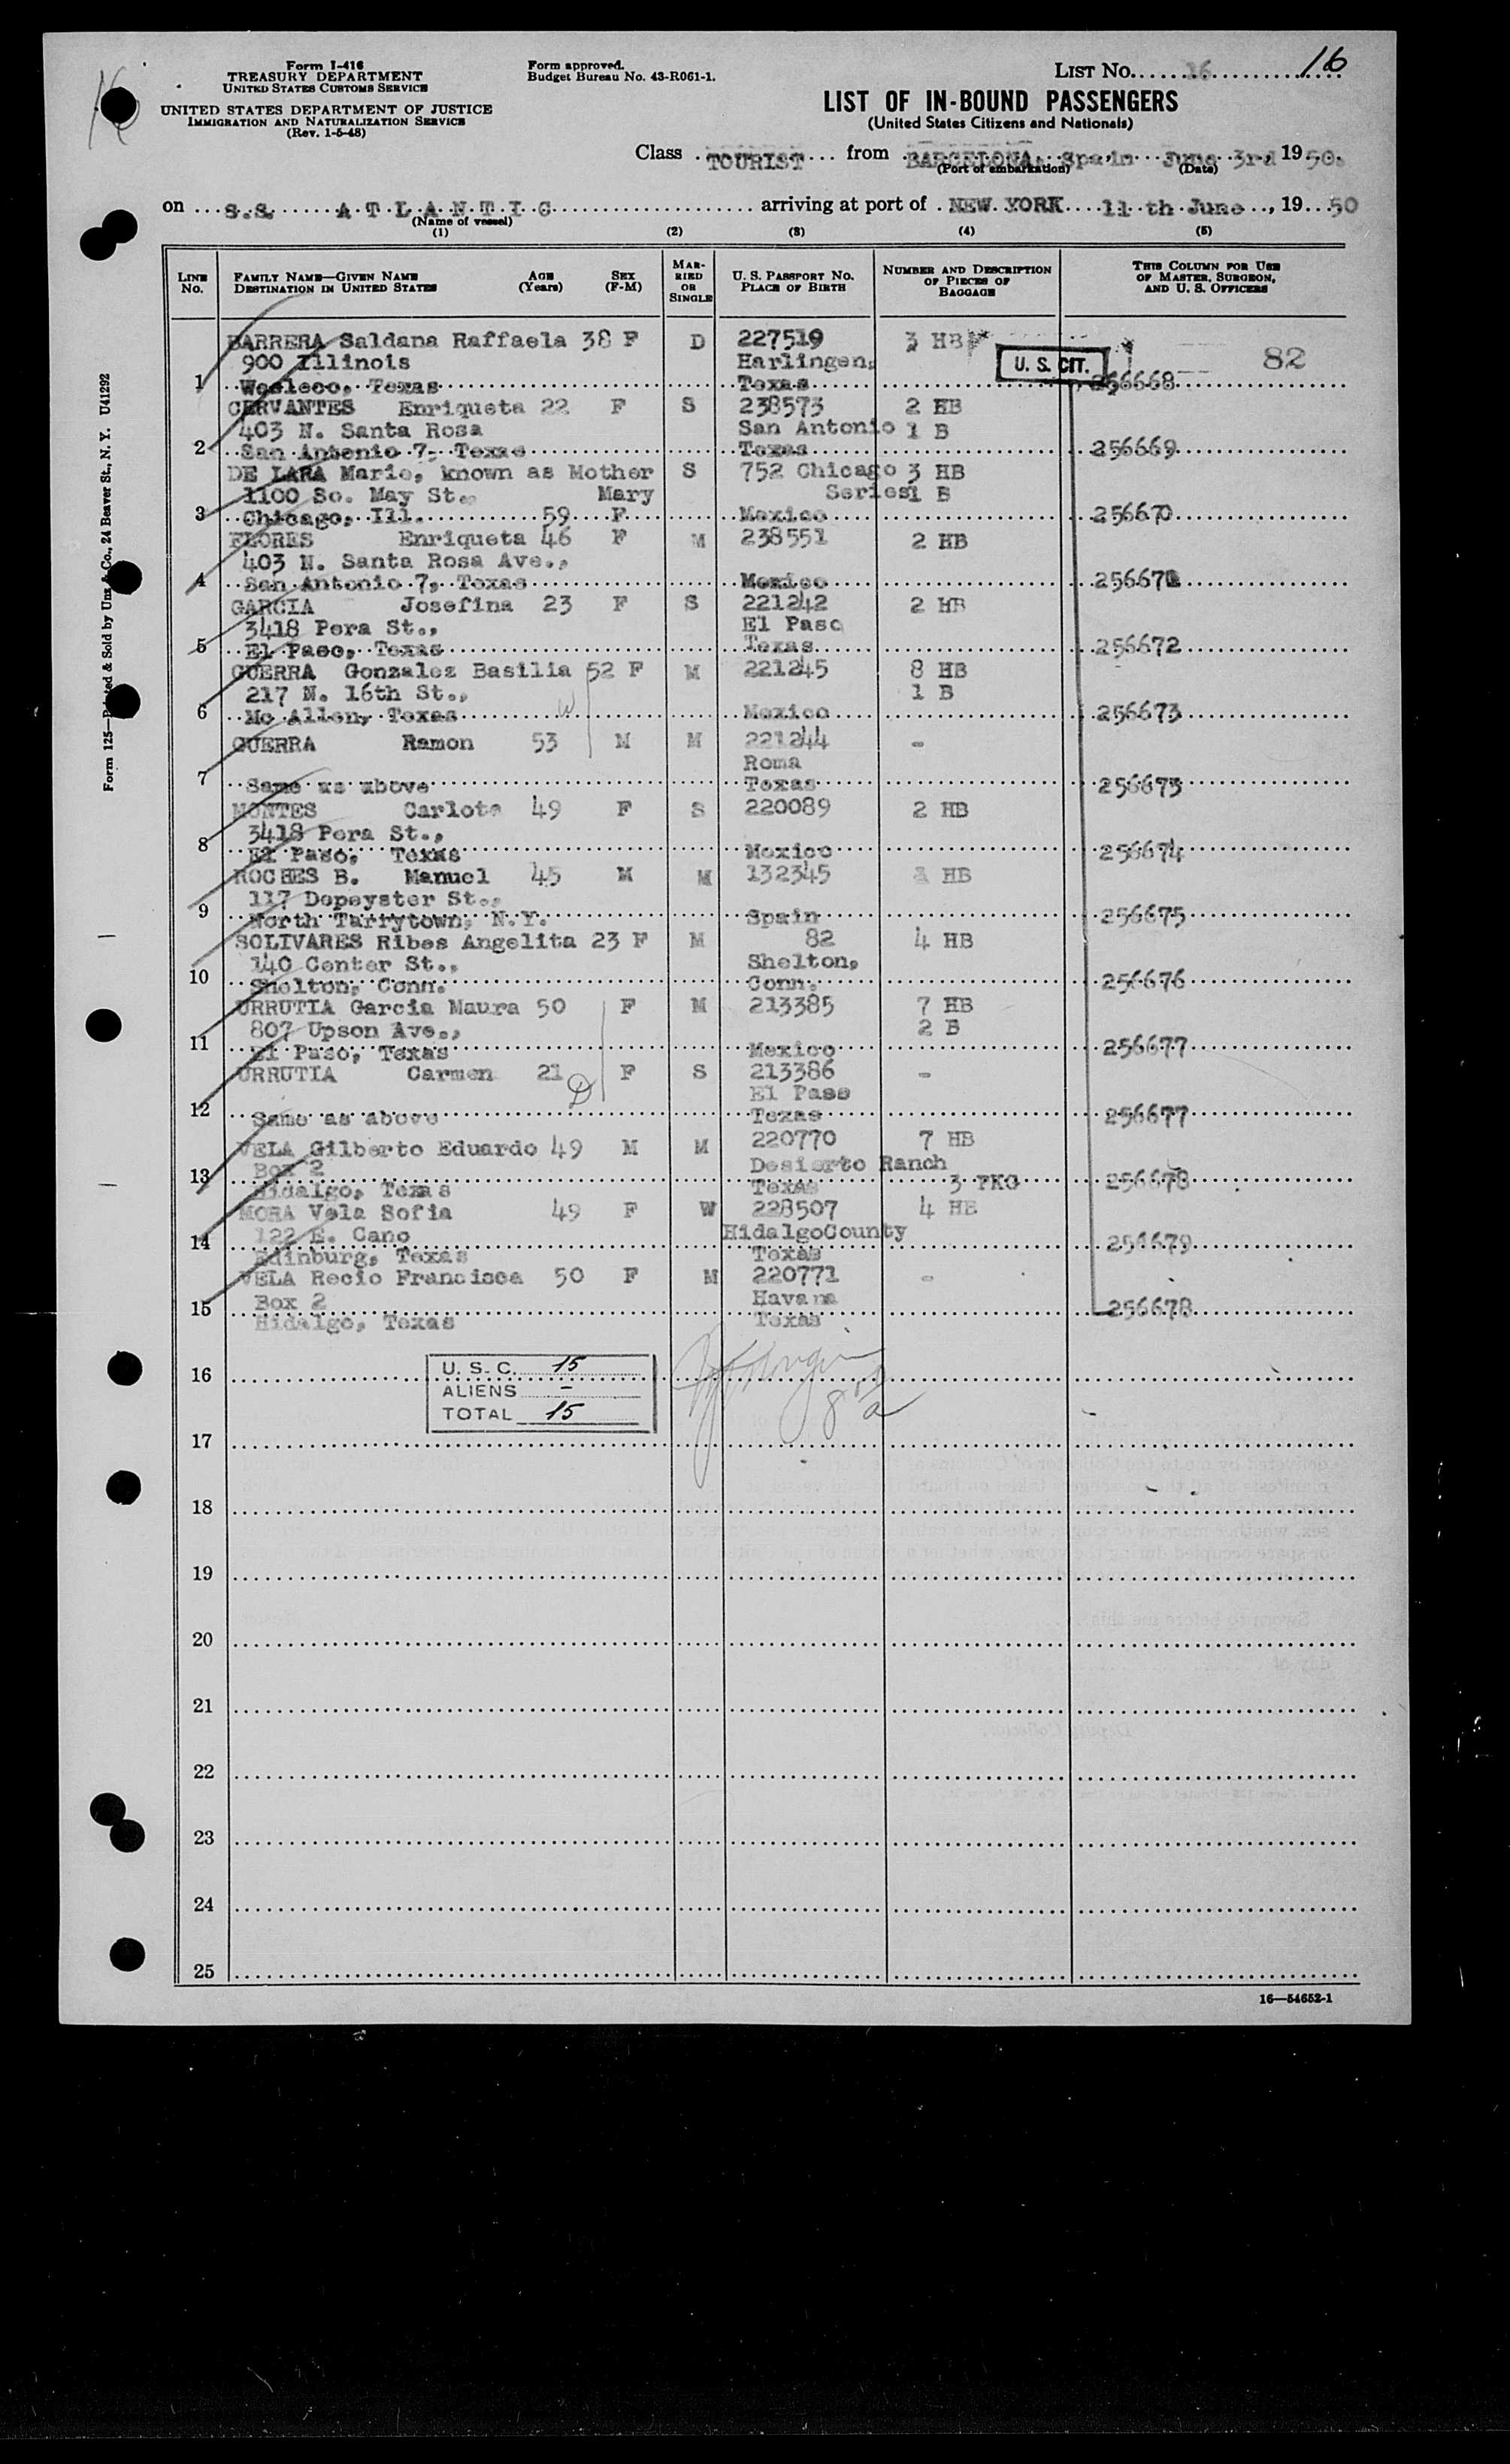 Form I-416
TREASURY DEPARTMENT
UNITED STATES CUSTOMS SERVICE
UNITED STATES DEPARTMENT OF JUSTICE
IMMIGRATION AND NATURALIZATION SERVICE
(Rev. 1-5-48)
Form approved.
Budget Bureau No. 43-R061-1.
LIST No. 16 16
LIST OF IN-BOUND PASSENGERS
(United States Citizens and Nationals)
Class TOURIST from BARCELONA, Spain June 3rd, 19 50.
(Port of embarkation) (Date)
on S.S. ATLANTIC arriving at port of NEW YORK 11 th June, 19 50
(Name of vessel)
(1) (2) (3) (4) (5)
LINE No. FAMILY NAME—GIVEN NAME DESTINATION IN UNITED STATES AGE (Years) SEX (F-M) MARRIED OR SINGLE U. S. PASSPORT No. PLACE OF BIRTH NUMBER AND DESCRIPTION OF PIECES OF BAGGAGE THIS COLUMN FOR USE OF MASTER, SURGEON, AND U. S. OFFICERS
BARRERA Saldana Raffaela 38 F D 227519 3 HB
900 Illinois Harlingen, U. S. CIT. 82
1 Weslaco, Texas Texas 256668
CERVANTES Enriqueta 22 F S 238573 2 HB
403 N. Santa Rosa San Antonio 1 B
2 San Antonio 7, Texas Texas 256669
DE LARA Marie, known as Mother S 752 Chicago 3 HB
1100 So. May St., Mary Series 1 B
3 Chicago, Ill. 59 F Mexico 256670
FLORES Enriqueta 46 F M 238551 2 HB
403 N. Santa Rosa Ave.,
4 San Antonio 7, Texas Mexico 256671
GARCIA Josefina 23 F S 221242 2 HB
3418 Pera St., El Paso
5 El Paso, Texas Texas 256672
GUERRA Gonzalez Basilia 52 F M 221245 8 HB
217 N. 16th St., 1 B
6 Mc Allen, Texas W Mexico 256673
GUERRA Ramon 53 M M 221244 -
Roma
7 Same as above Texas 256673
MONTES Carlota 49 F S 220089 2 HB
3418 Pera St.,
8 El Paso, Texas Mexico 256674
ROCHES B. Manuel 45 M M 132345 HB
117 Depeyster St.,
9 North Tarrytown, N.Y. Spain 256675
SOLIVARES Ribes Angelita 23 F M 82 4 HB
140 Center St., Shelton,
10 Shelton, Conn. Conn. 256676
URRUTIA Garcia Maura 50 F M 213385 7 HB
807 Upson Ave., 2 B
11 El Paso, Texas Mexico 256677
URRUTIA Carmen 21 D F S 213386 -
El Paso
12 Same as above Texas 256677
VELA Gilberto Eduardo 49 M M 220770 7 HB
Box 2 Desierto Ranch
13 Hidalgo, Texas Texas 3 PKG 256678
MORA Vela Sofia 49 F W 228507 4 HB
122 E. Cano HidalgoCounty
14 Edinburg, Texas Texas 256679
VELA Recio Francisca 50 F M 220771 -
Box 2 Havana
15 Hidalgo, Texas Texas 256678
16 U. S. C. 15
ALIENS -
TOTAL 15
17
18
19
20
21
22
23
24
25
16—54652-1
Form 125—Printed & Sold by Unz & Co., 24 Beaver St., N. Y. U41292